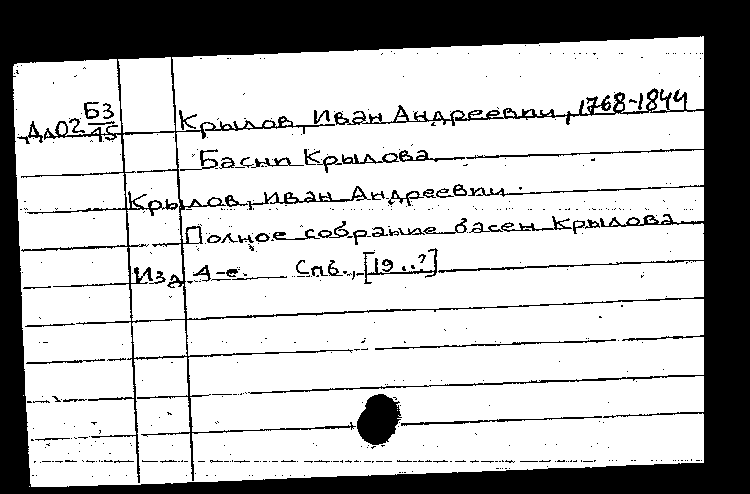 Дл02 Б3/45 Крылов, Иван Андреевпи, 1768-1844
Баснп Крылова.
Крылов, Иван Андреевпи.
Полное собранпе басен Крылова.
Изд 4-е. Спб., [19..?]